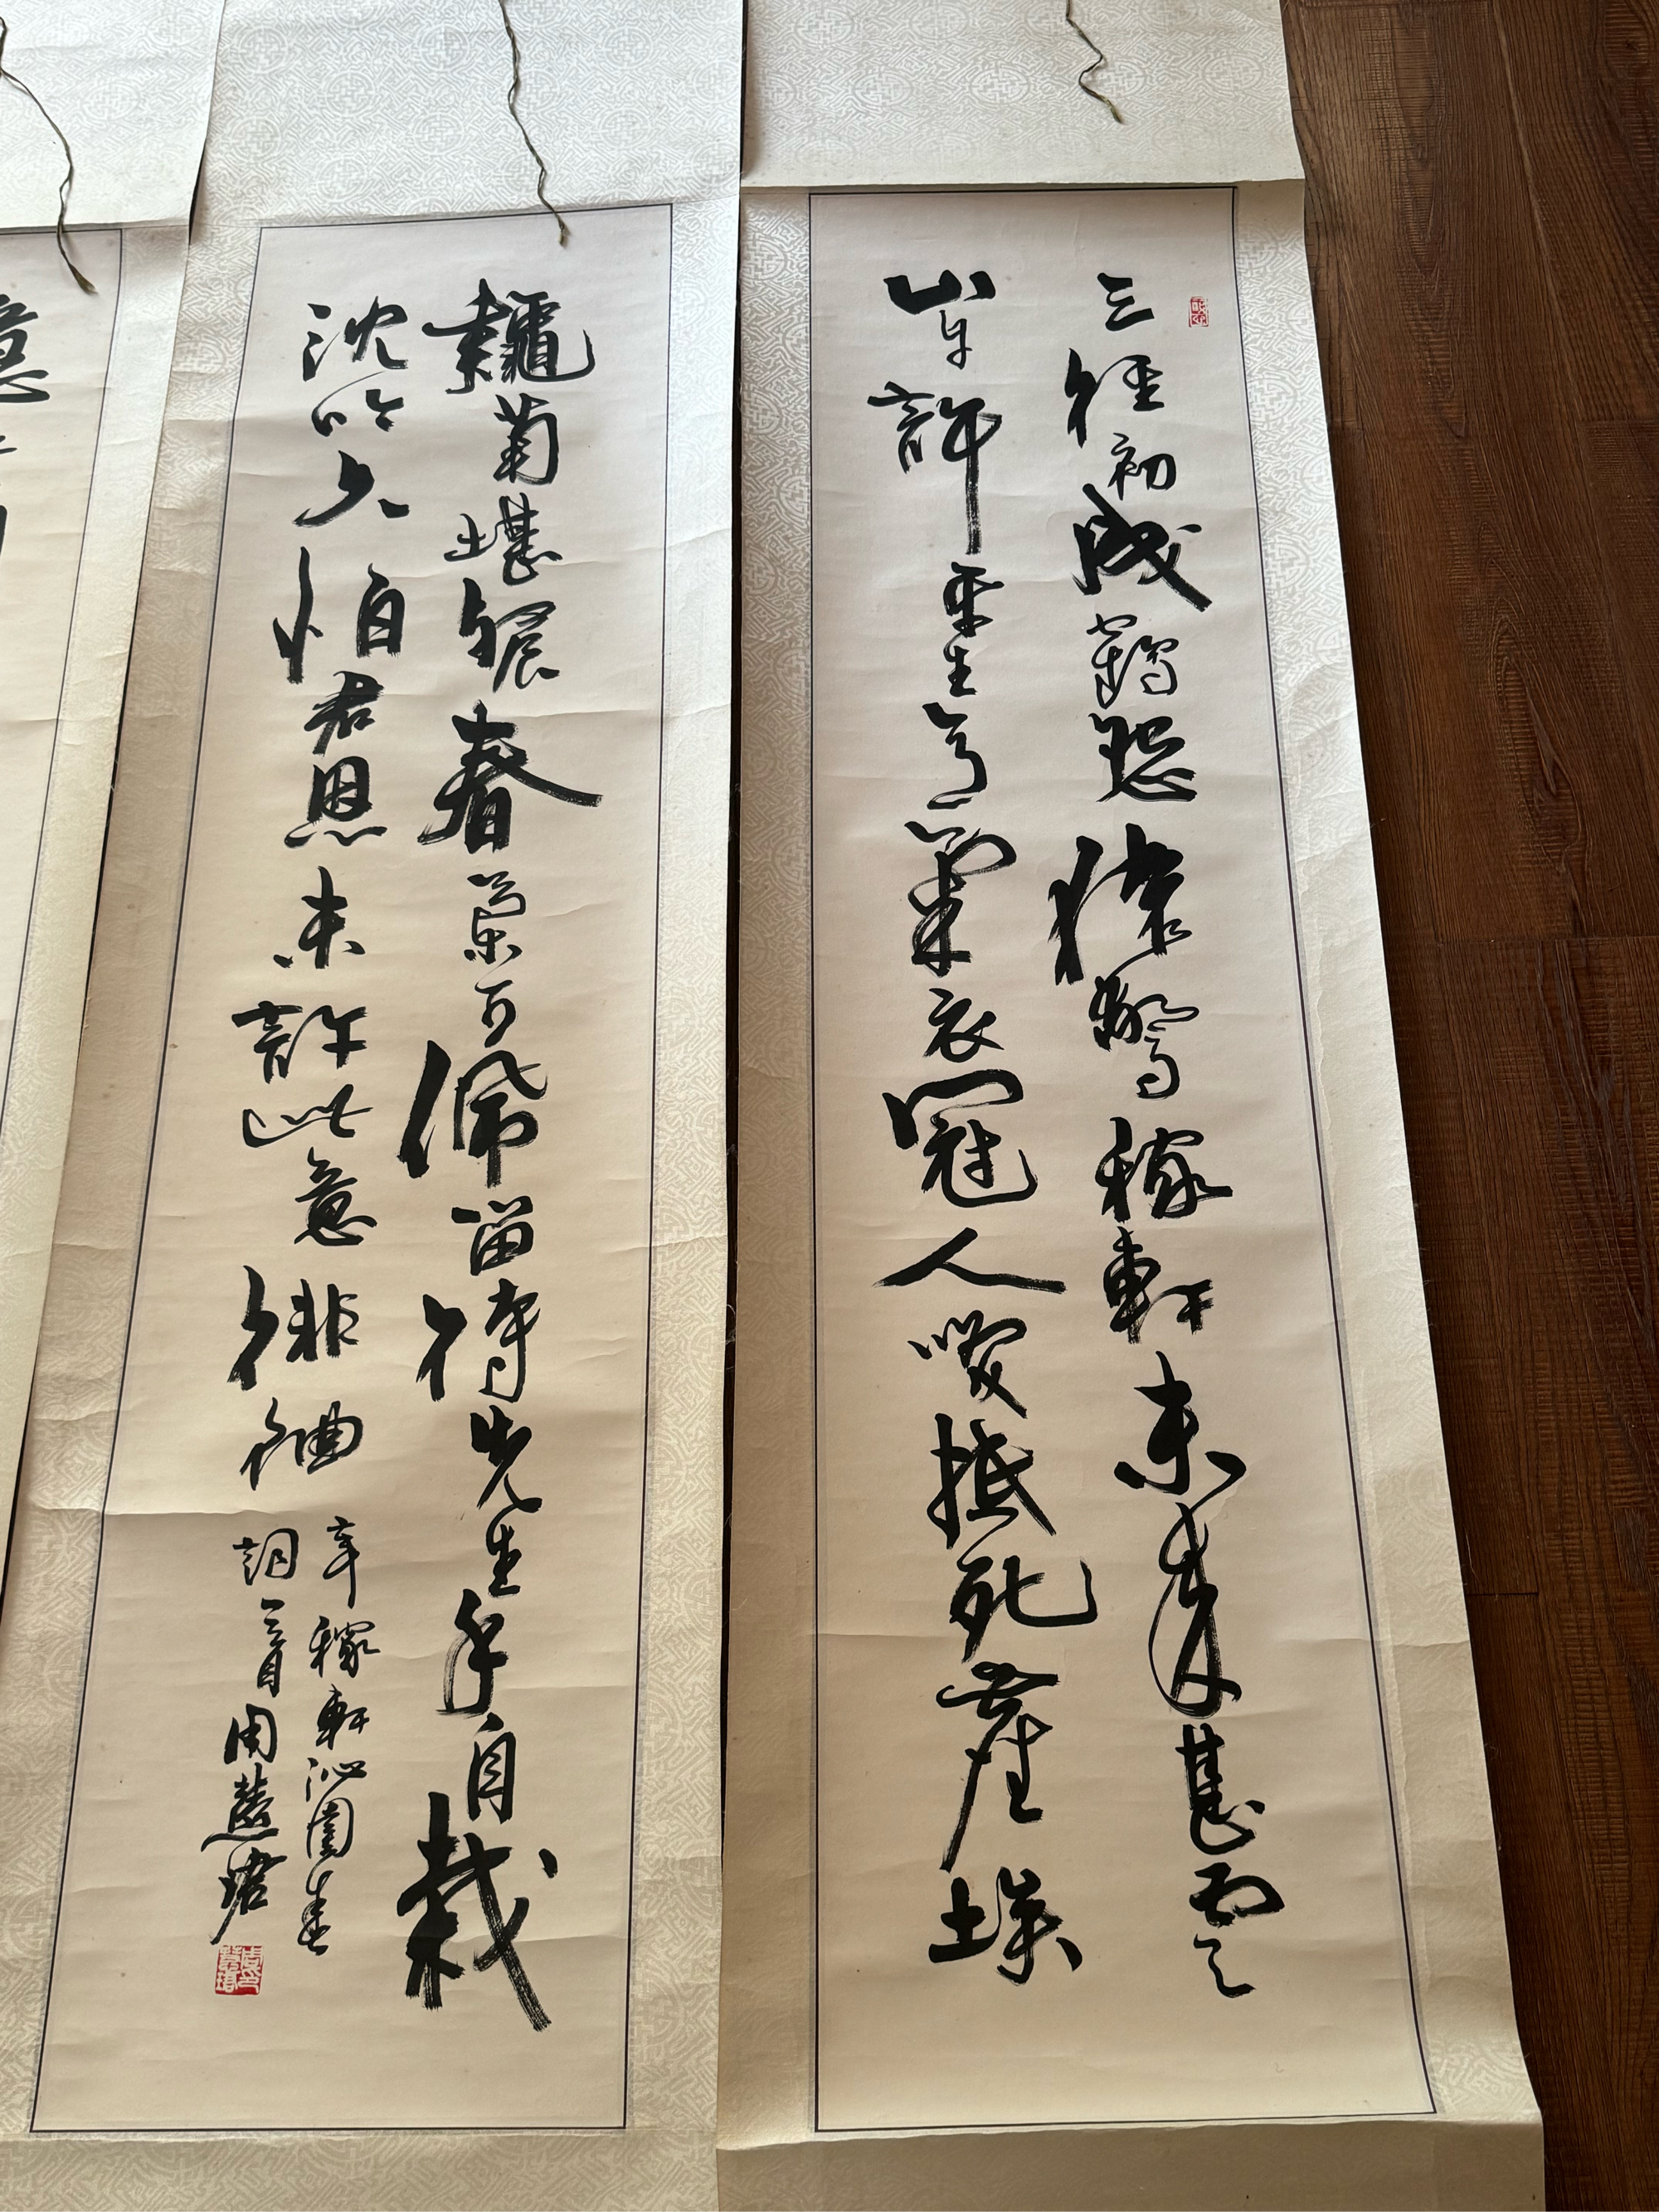 三徑初成鶴怨猿驚稼軒未來甚雲
山自許平生意氣衣冠人咲抵死塵埃
龝菊堪餐春蘭可佩留待先生手自栽
沈吟久怕君恩未許此意徘徊
辛稼軒沁園春
詞一首周慧珺